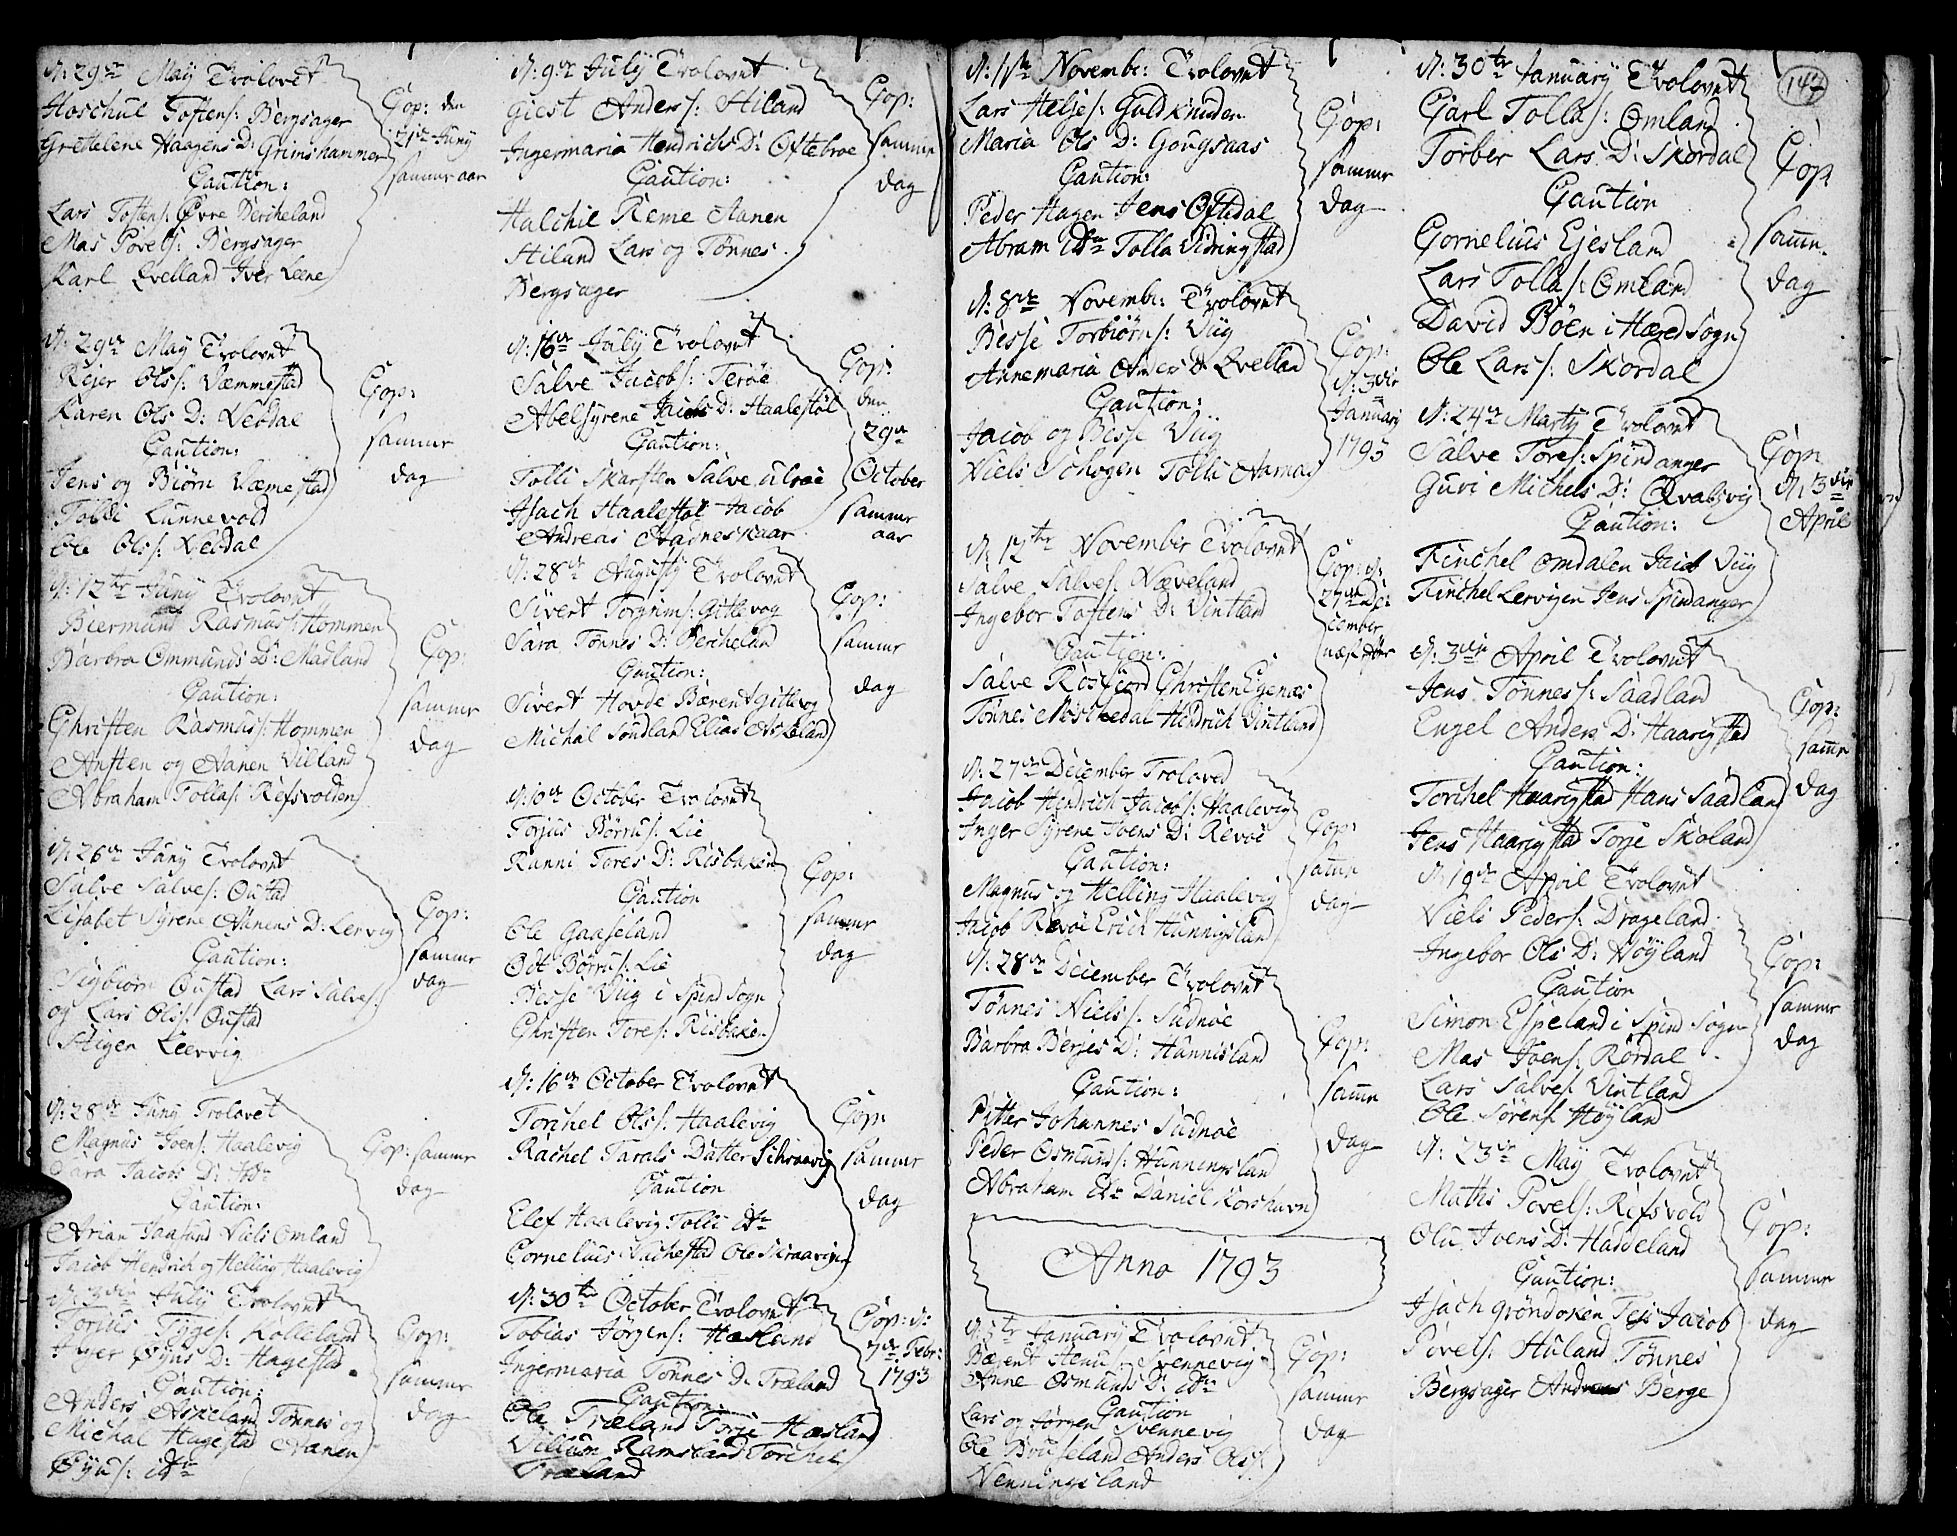 d: 29de May Trolovet
Aoschul Toftens: Bergsager
Grettelene Haagens D: Grimshammer
Caution:
Lars Toftens: Øvre Bercheland
Mas Povels: Bergsager
Karl Qvelland Iver Leene
Cop: den
21de Juny
samme aar
d: 29de May Trolovet
Rejer Ols: Væmmestad
Karen Ols D: Vebdal
Caution:
Jens og Biörn Væmestad
Tolli Lunnevold
Ole Ols: Vebdal
Cop:
samme
dag
d: 12te Juny Trolovet
Biermand Rasmus: Hommen
Barbra Ommunds D: Madland
Caution:
Christen Rasmus: Hommen
Ansten og Aanen Villand
Abraham Tollas: Refsvolden
Cop:
samme
dag
d: 26de Juny Trolovet
Salve Salves: Oustad
Lisabet Syrene Aanens D: Lervig
Caution:
Sigbiörn Oustad Lars Salves:
og Lars Ols: Oustad
Stigen Leervig
Cop:
samme
dag
d: 28de Juny Trolovet
Magnus Joens: Haalevig
Sara Jacobs D: ibm
Caution:
Arian Jaasund Niels Omland
Jacob Hendrich og Helling Haalevig
Cop: samme
dag
d: 3die July Trolovet
Torjus Törges: Kolleland
Inger Öyus D: Hagestad
Caution:
Anders Aspeland Tönnes og
Michal Hagestad Aanen
Öyus: ibm
Cop:
samme
dag
d: 9de July Trolovet
Giest Anders: Hiland
Ingermaria Hendrichs D: Oftebroe
Caution:
Halchil Reme Aanen
Hiland Lars og Tönnes
Bergsager
Cop:
samme
dag
d: 16de July Trolovet
Salve Jacobs: Teröe
Abelsyrene Jacobs D: Haalestöl
Caution:
Tolli Skarsten Salve Ulröe
Isach Haalestöl Jacob
Andreas Aadneskaar
Cop:
den
29de
October
samme
aar
d: 28de Augusty Trolovet
Sivert Torgrims: Gitlevog
Sara Tönnes D: Bercheland
Caution:
Sivert Hovde Bærent Gitlevog
Michal Sundland Elias Askeland
Cop:
samme
dag
d: 10de October Trolovet
Torjus Börrus: Lie
Ranni Tores D: Risbaken
Caution
Ole Gaaseland
Odt Börrus: Lie
Besse Viig i Spind Sogn
Christen Tores: Risbaken
Cop:
samme
dag
d: 16de October Trolovet
Torchel Ols: Haalevig
Rachel Tarals Datter Schraavig
Caution
Elef Haalevig Tolli ibm
Cornelius Vachestad Ole Skraavigen
Cop:
samme
dag
d: 30te October Trolovet
Tobias Jörgens: Hasland
Ingermaria Tönnes D: Træland
Caution:
Ole Træland Torje Hasland
Villum Ramsland Torchel
Træland
Cop: d:
7de Febr:
1793
d: 1ste Novembr: Trolovet
Lars Heljes: Guldknuden
Maria Ols D: Gougsaas
Caution:
Peder Hagen Jens Oftedal
Abram ibm Tolla Vidringstad
Cop:
samme
dag
d: 8de Novembr: Trolovet
Besse Torbiörns: Viig
Annemaria Anders D: Qvelland
Caution:
Jacob og Besse Viig
Niels Schogen Tolli Aamas
Cop:
d: 3die
January
1793
d: 12te November Trolovet
Salve Salves: Næveland
Ingebor Toftens D: Vintland
Caution:
Salve Rosfiord Christen Egenæs
Tönnes Moschedal Hendrich Vintland
Cop: d:
27de De:
cember
næst Aar
d: 27de December Troloved
Jacob Hendrich Jacobs: Haalevig
Inger Syrene Joens D: Revöe
Caution:
Magnus og Helling Haalevig
Jacob Revöe Erich Hunnigsland
Cop:
samme
dag
d: 28de December Trolovet
Tönnes Niels: Sudnöe
Barbra Berjes D: Hunnisland
Caution:
Pitter Johannes Sudnöe
Peder Osmunds: Hunningsland
Abraham ibm Daniel Korshavn
Cop:
samme
dag
Anno 1793
January Trolovet
Bærent Svennevig
Anne Osmunds D: ibm
Caution
Lars og Jörgen Svennevig
Ole Anders Ols:
Venningsland
Cop:
samme
dag
147
d: 30te January Trolovet
Carl Tollas: Omland
Torber Lars D: Skordal
Caution
Cornelius Ejesland
Lars Tollas: Omland
David Böen i Hered Sogn
Ole Lars: Skordal
Cop
samme
dag
d: 24de Marty Trolovet
Salve Tores: Spindanger
Guri Michels D: Qvalsvig
Caution:
Tinchel Omdalen Jacob Viig
Tinchel Lervigen Jens Spindanger
Cop:
d: 3die
April
d: 3die April Trolovet
Jens Tönnes: Saadland
Engel Anders D: Haarigstad
Caution:
Torchel Haarigstad Hans Saadland
Jens Haarigstad Torje Skoland
Cop:
samme
dag
d: 19de April Trolovet
Niels Peders: Drageland
Ingebor Ols D: Höyland
Caution
Simon Espeland i Spind Sogn
Mas Joens: Rördal
Lars Salves: Vintland
Ole Sörens: Höyland
Cop:
samme
dag
d: 23de May Trolovet
Maths Povels: Refsvold
Olu Joens D: Haddeland
Caution:
Isach Gröndoken Jacob
Povels: Huland Tönnes
Bergsager Andreas Berge
Cop:
samme
dag